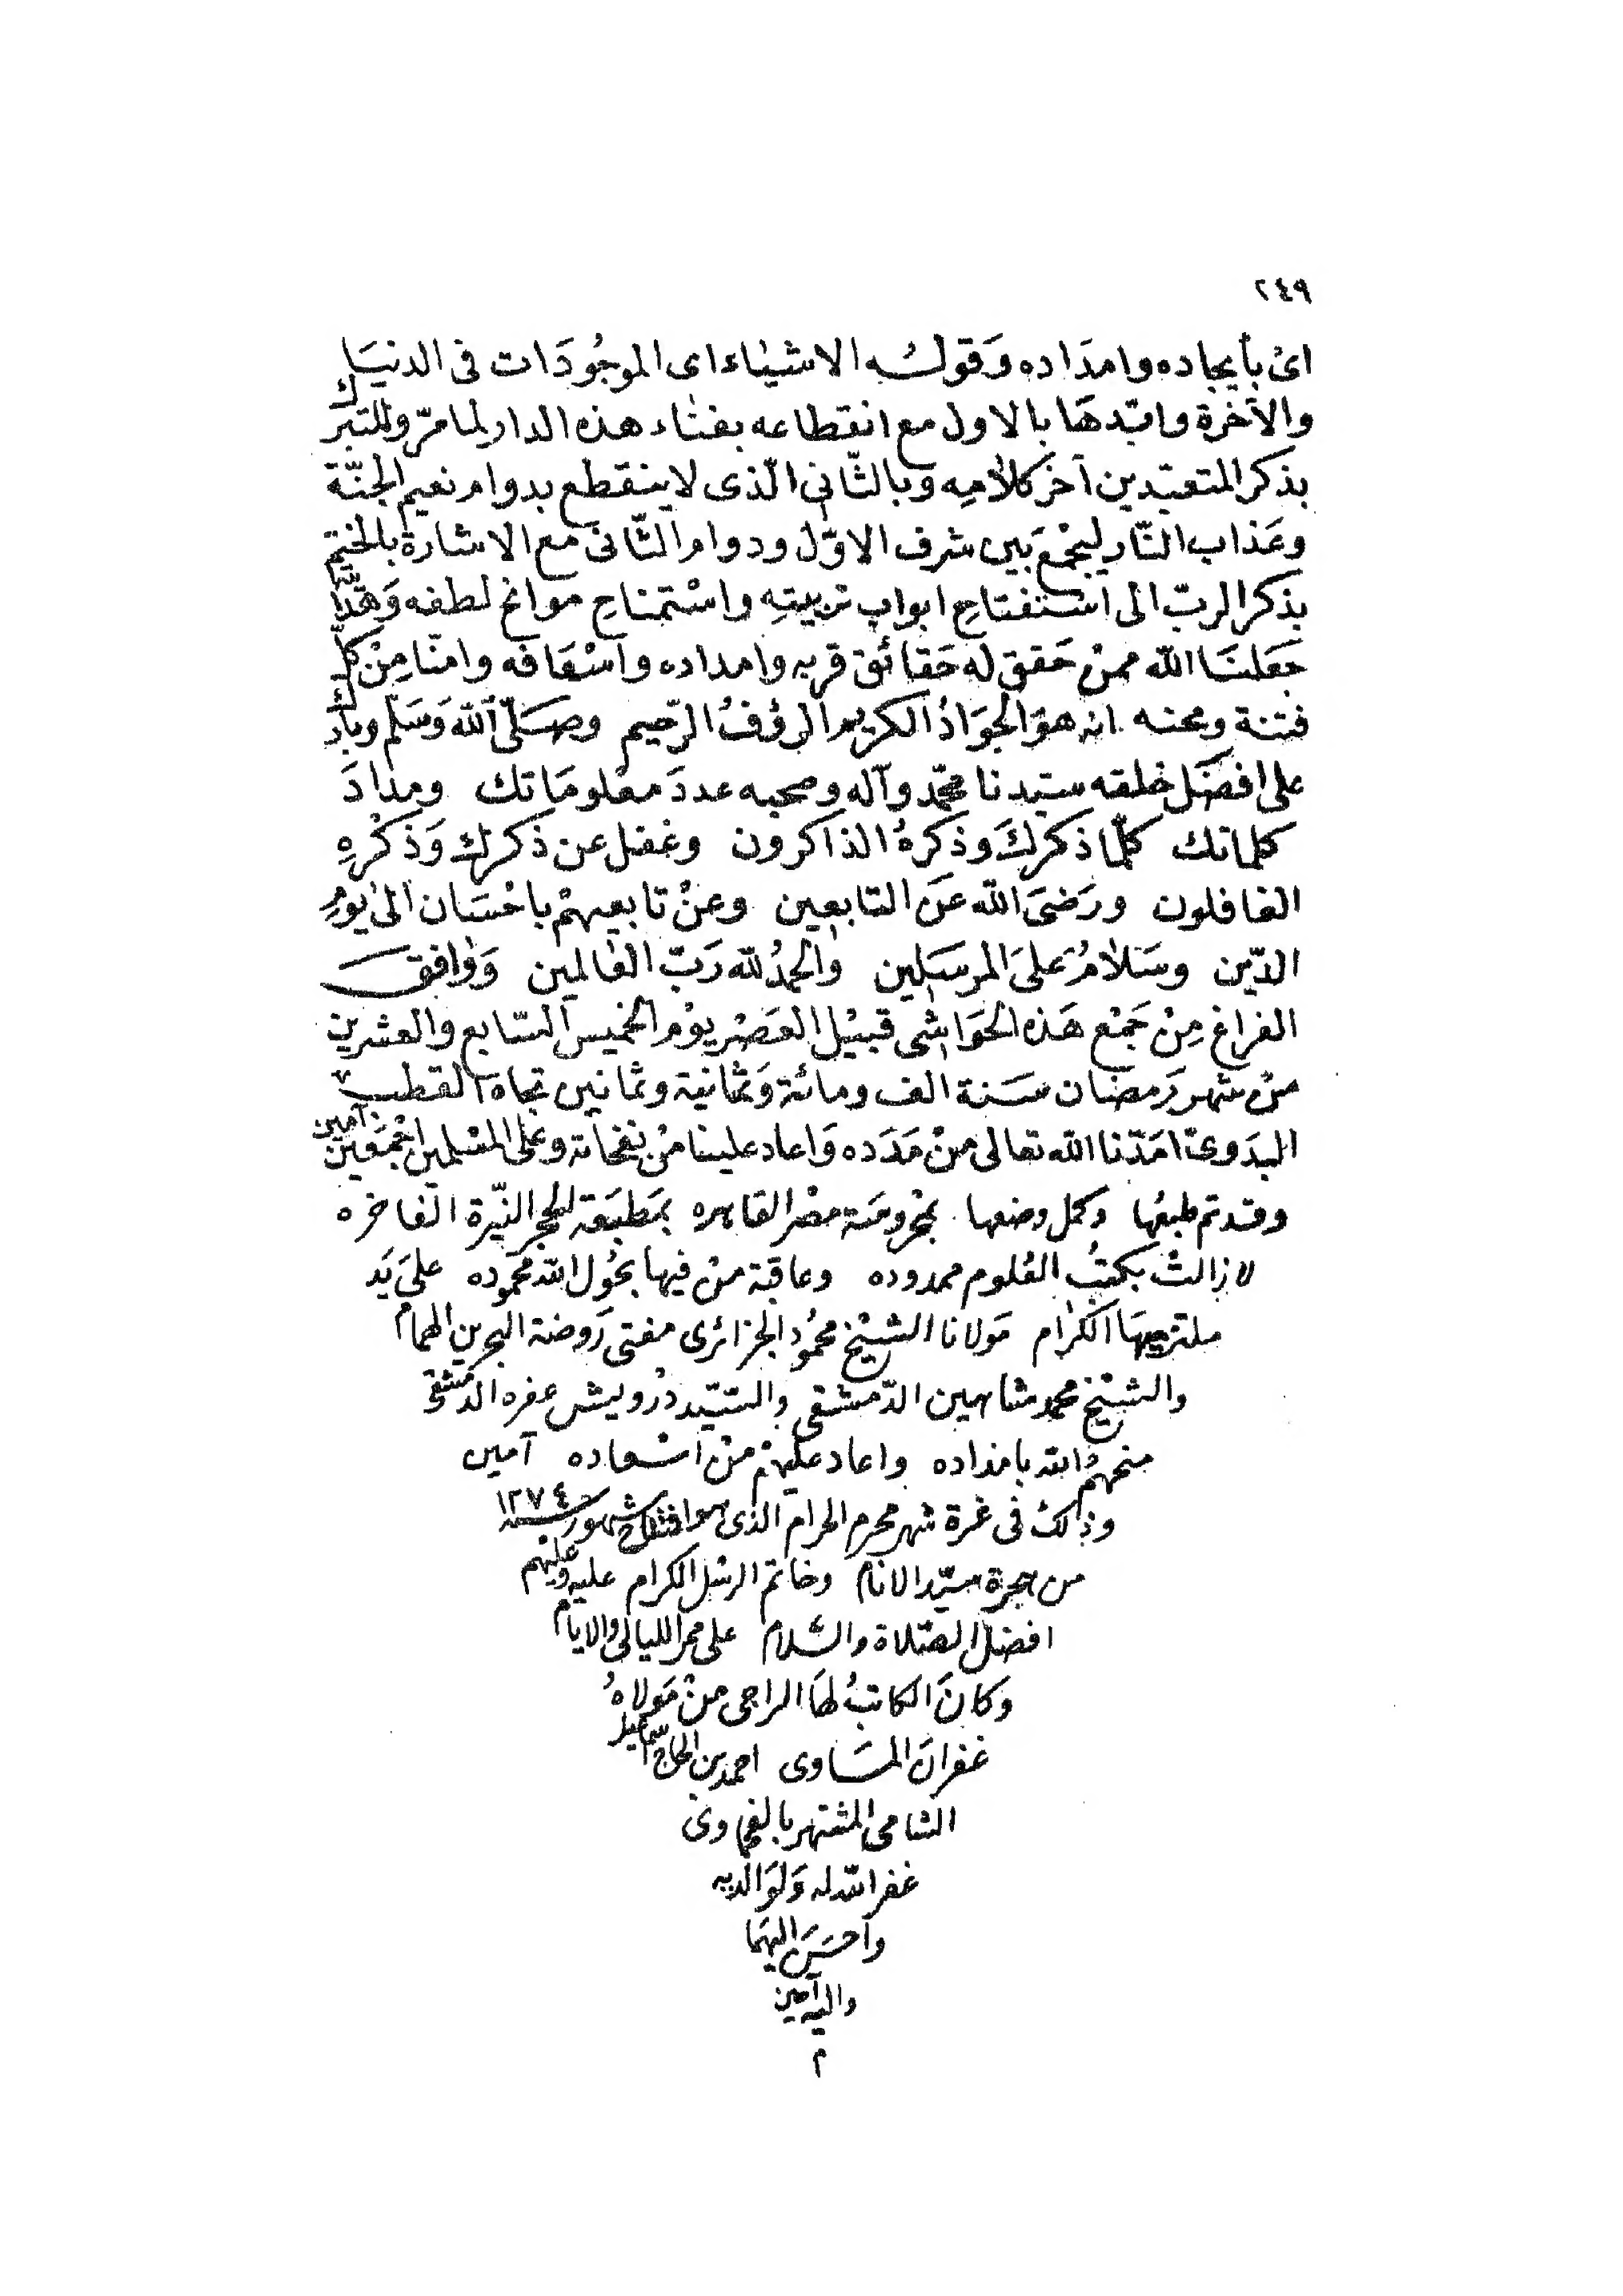 ٢٤٩
اىْ بأيجاده وامدَاده وَقولـُـه الاشيٰاء اى الموجُودَات فى الدنيَا
والآخرة وابّدهَا بالاول مع انقطاعه بفنٰاء هذه الدار لما مرّ وللتبرك
بذكر المتعبّدين آخر كلامِه وبالثّانى الّذى لا ينقطع بدوام نعيم الجنّة
وعَذاب النّار ليجْمعَ بَين شرف الاوّل ودوام الثّانى مع الاشارة بالختم
بذكر الربّ الى استفتاحِ ابواب تربيتهِ واسْتمناحِ موانح لطفه وَهدايته
جَعلنَا اللّه ممنْ حَقق له حَقائق قربه وامداده واسْعَافه وامنّا مِنْ كلّ
فتنة ومحنه انه هوَ الجوَادُ الكريم الرؤفُ الرّحيم وصَـلّى اللّه وَسَلّم وبارك
على افضَل خلقه سيّدنا محمّد وآله وصحبه عددَ معْلومَاتك ومدٰادَ
كلماتك كلّما ذكركَ وذكرهُ الذاكرون وغفل عن ذكرك وَذكْرهِ
الغافلون ورَضىَ اللّه عَن التابعِين وعنْ تابعيهمْ باحْسَان الىٰ يومِ
الدّين وسَلاٰمُ علىَ المرسَلين والحمدُ للّه رَبّ العٰالمين وَوٰافق
الفراغ مِنْ جَمْع هَذه الحوَاشى قبيْل العَصْر يوْم الخميس السّابع والعشرين
منْ شهر رَمضان سَـنة الف ومائة وَثمانية وثمانين تجاه القطب
البدَوىّ امَدّنا اللّه تعالى منْ مَدَده وَاعاد علينا منْ نفحاته وعلى المسْلمين اجْمعَين آمين
وقد تم طبعُها وكمل وضعها بمحروسَة مصْر القاهره بمَطبعَة الحجر النّيّرة الفاخره
لا زالتْ بكتبُ العُلوم ممدوده وعاقبة منْ فيها بحَوْل اللّه محموده علىَ يَد
ملتزميهَا الكرٰام مَولانا الشيْخ محمُود الجزائرى مفتى رَوضة البحرين الهمام
والشيْخ محمد شاهين الدّمشقى والسّيّد درْويش عفره الدمشقى
منحهمُ اللّه بامدَاده واعاد عليْهمْ منْ اسْعاده آمين
وذلكَ فى غرة شهر محرم الحرام الذى هو افتتاح شهور سنة ١٢٧٤
من هجرة سيّد الانام وخاتم الرسْل الكرام عليه وعليْهم
افضل الصّلاة والسّلام على ممر الليالى والايام
وَكانَ الكاتبُ لهَا الراجى منْ مَولاهُ
غفرانَ المسَاوى احمد بن الحاج اسماعيل
الشامى المشتهر بالعجاوى
غفر اللّه له وَلوَالديه
وَاحسَن اليهمَا
واليه آمين
م